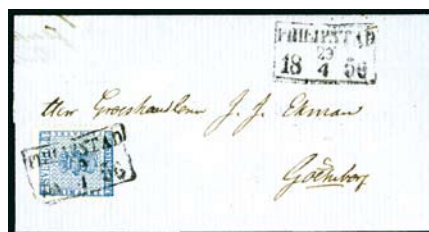 PHILIPSTAD
29
18 4 56
Herr Grosshandlaren J. J. Ekman
Götheborg
PHILIPSTAD